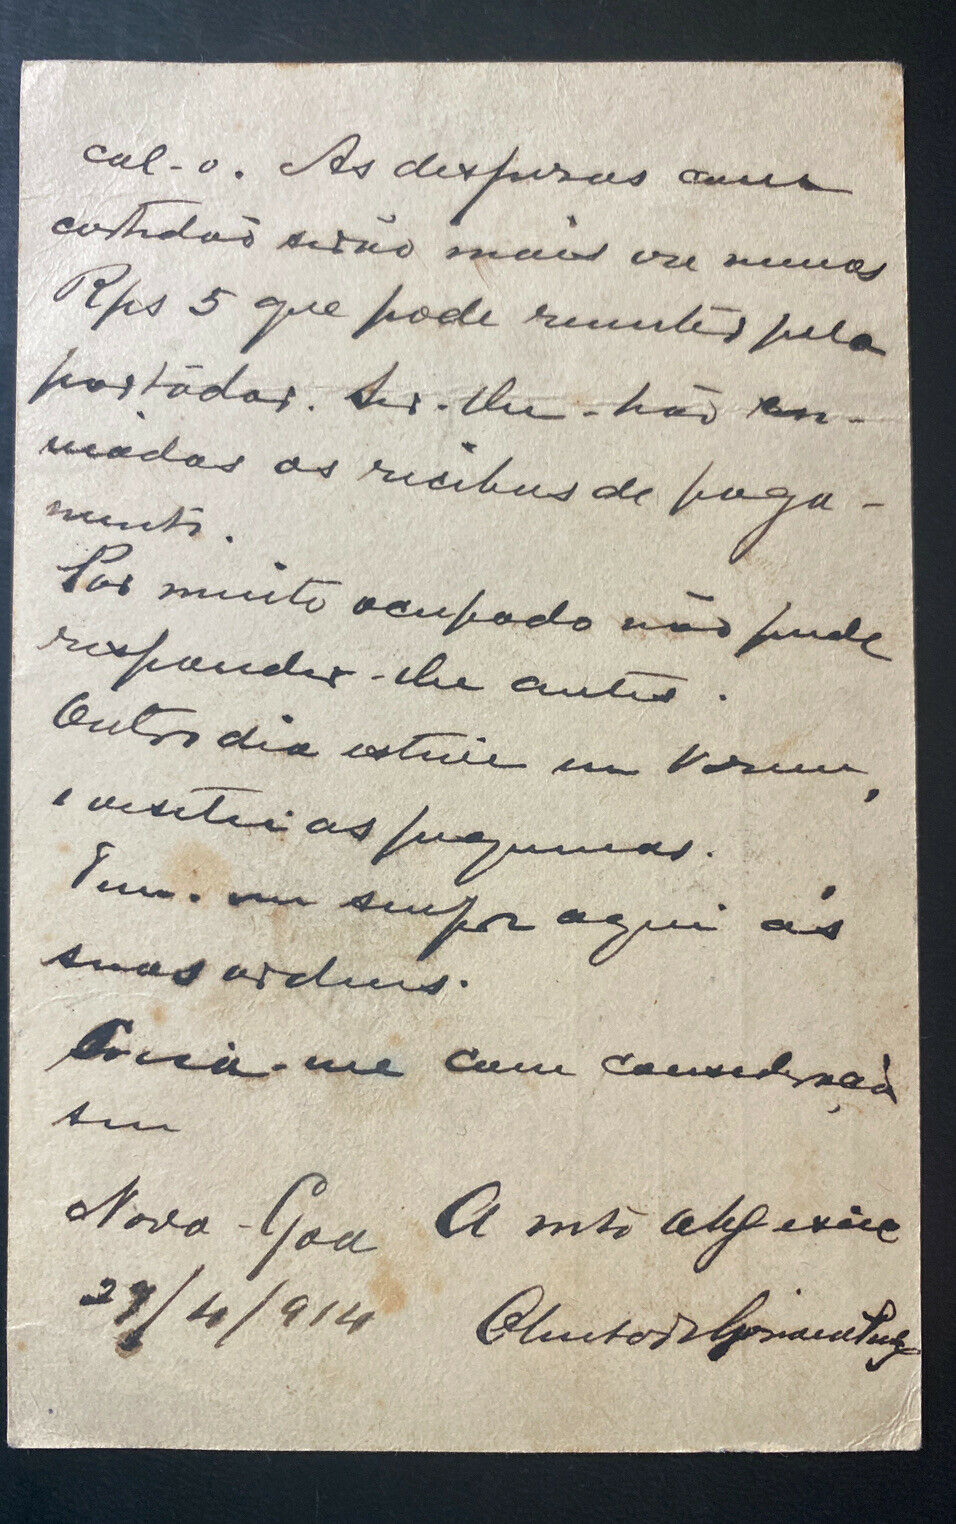 cal-o. As despesas com
certidão serão mais ou menos
Rps 5 que pode remeter pelo
portador. Ser-lhe-hão en-
viados os recibos de paga-
mento.
Por muito ocupado não pude
responder-lhe antes.
Outro dia estive em Verem,
e visitei as pequenas.
Tem-me sempre aqui ás
suas ordens.
Creia-me com consideração
seu
Nova-Goa A mto
27/4/914